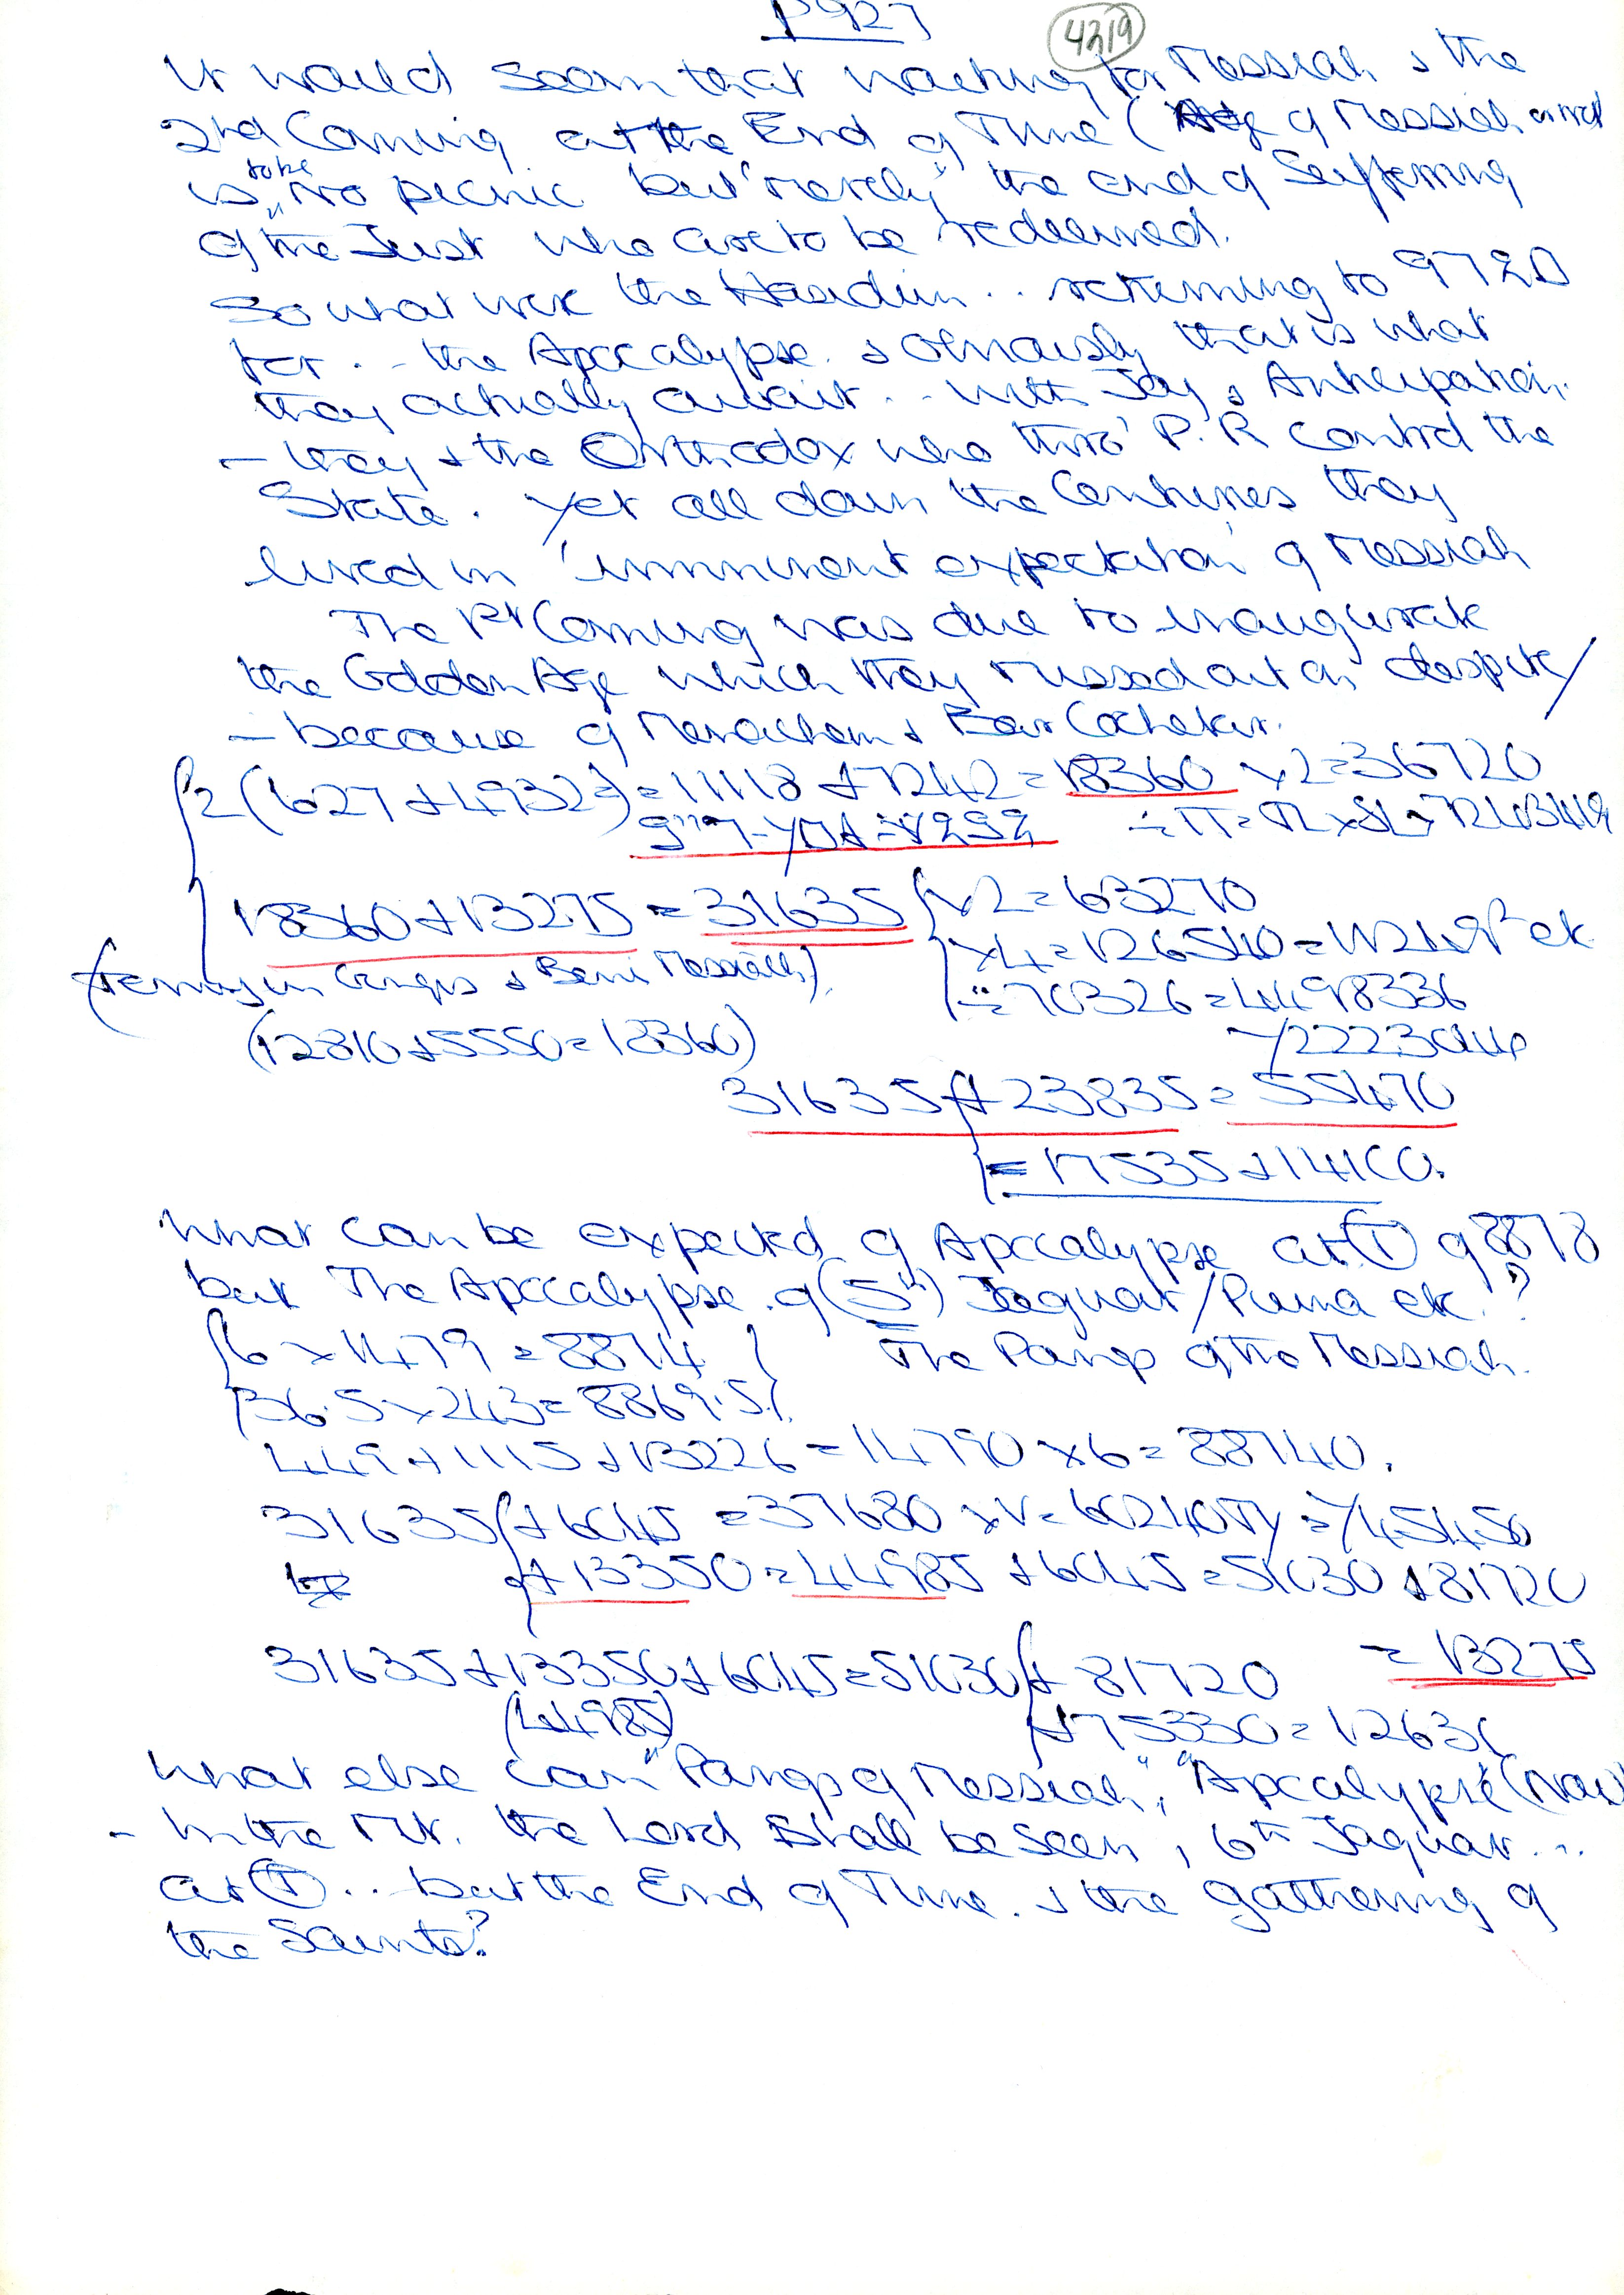 P927
4219
It would seem that waiting for Messiah & the
2nd Coming at the End of Time ( of Messiah
is to be "no picnic but "merely" the end of Suffering
of the Just who are to be redeemed.
So what were the Hasidim .. returning to
for .. the Apocalypse. & obviously that is what
they actually await .. with Joy & Anticipation.
- they & the Orthodox who thro' P.R control the
State. Yet all down the Centuries they
lived in 'imminent expectation' of Messiah
The 1st Coming was due to inaugurate
the Golden Age which they missed out on despite/
- because of Menachem & Bar Cochekar.
2(1627+4932 = 11118 + 7242 = 18360 x2=36720
18360+13275 = 31635 { x2=63270
x4=126540=
(12810+5550=18360)
÷ 70326=4498336
31635 { + 23835 = 55470
= 17535 + 14100.
What can be expected of Apocalypse at (T) of 8878
but The Apocalypse of (5th) Jaguar/Puma etc.?
{6 x 1479 = 8874 } The Pangs of the Messiah.
{36.5 x 243 = 8869.5}
449 + 1115 + 13226 = 14790 x 6 = 88740.
31635 { + 6045 = 37680
+ 13350 = 44985 + 6045 = 51030 + 81720
= 13275
31635 + 13350 + 6045 = 51030 { + 81720
(44985)
+ 75330 = 12636
What else can "Pangs of Messiah", "Apocalypse" (Now
- In the Mt. the Lord Shall be Seen, 6th Jaguar ...
at (T) .. but the End of Time. & the gathering of
the Saints?